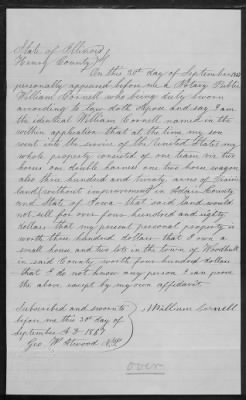 State of Illinois }
Henry County } SS
On this 30th day of September 1887
personally appeared before me a Notary Public
William Cornell who being duly sworn
according to law doth depose and say I am
the identical William Cornell named in the
within application that at the time my son
went into the service of the United States my
whole property consisted of one team viz two
horses one double harness one two horse wagon
also three hundred and twenty acres of Prairie
land (without improvement) in Adair County
and State of Iowa that said land would
not sell for over four hundred and eighty
dollars that my present personal property is
worth three hundred dollars that I own a
small house and two lots in the town of Woodhull
in said County worth four hundred dollars
that I do not know any person I can prove
the above except by my own affidavit
Subscribed and sworn to } William Cornell
before me this 30th day of
September A D 1887
Geo. W. Atwood N.P.
over